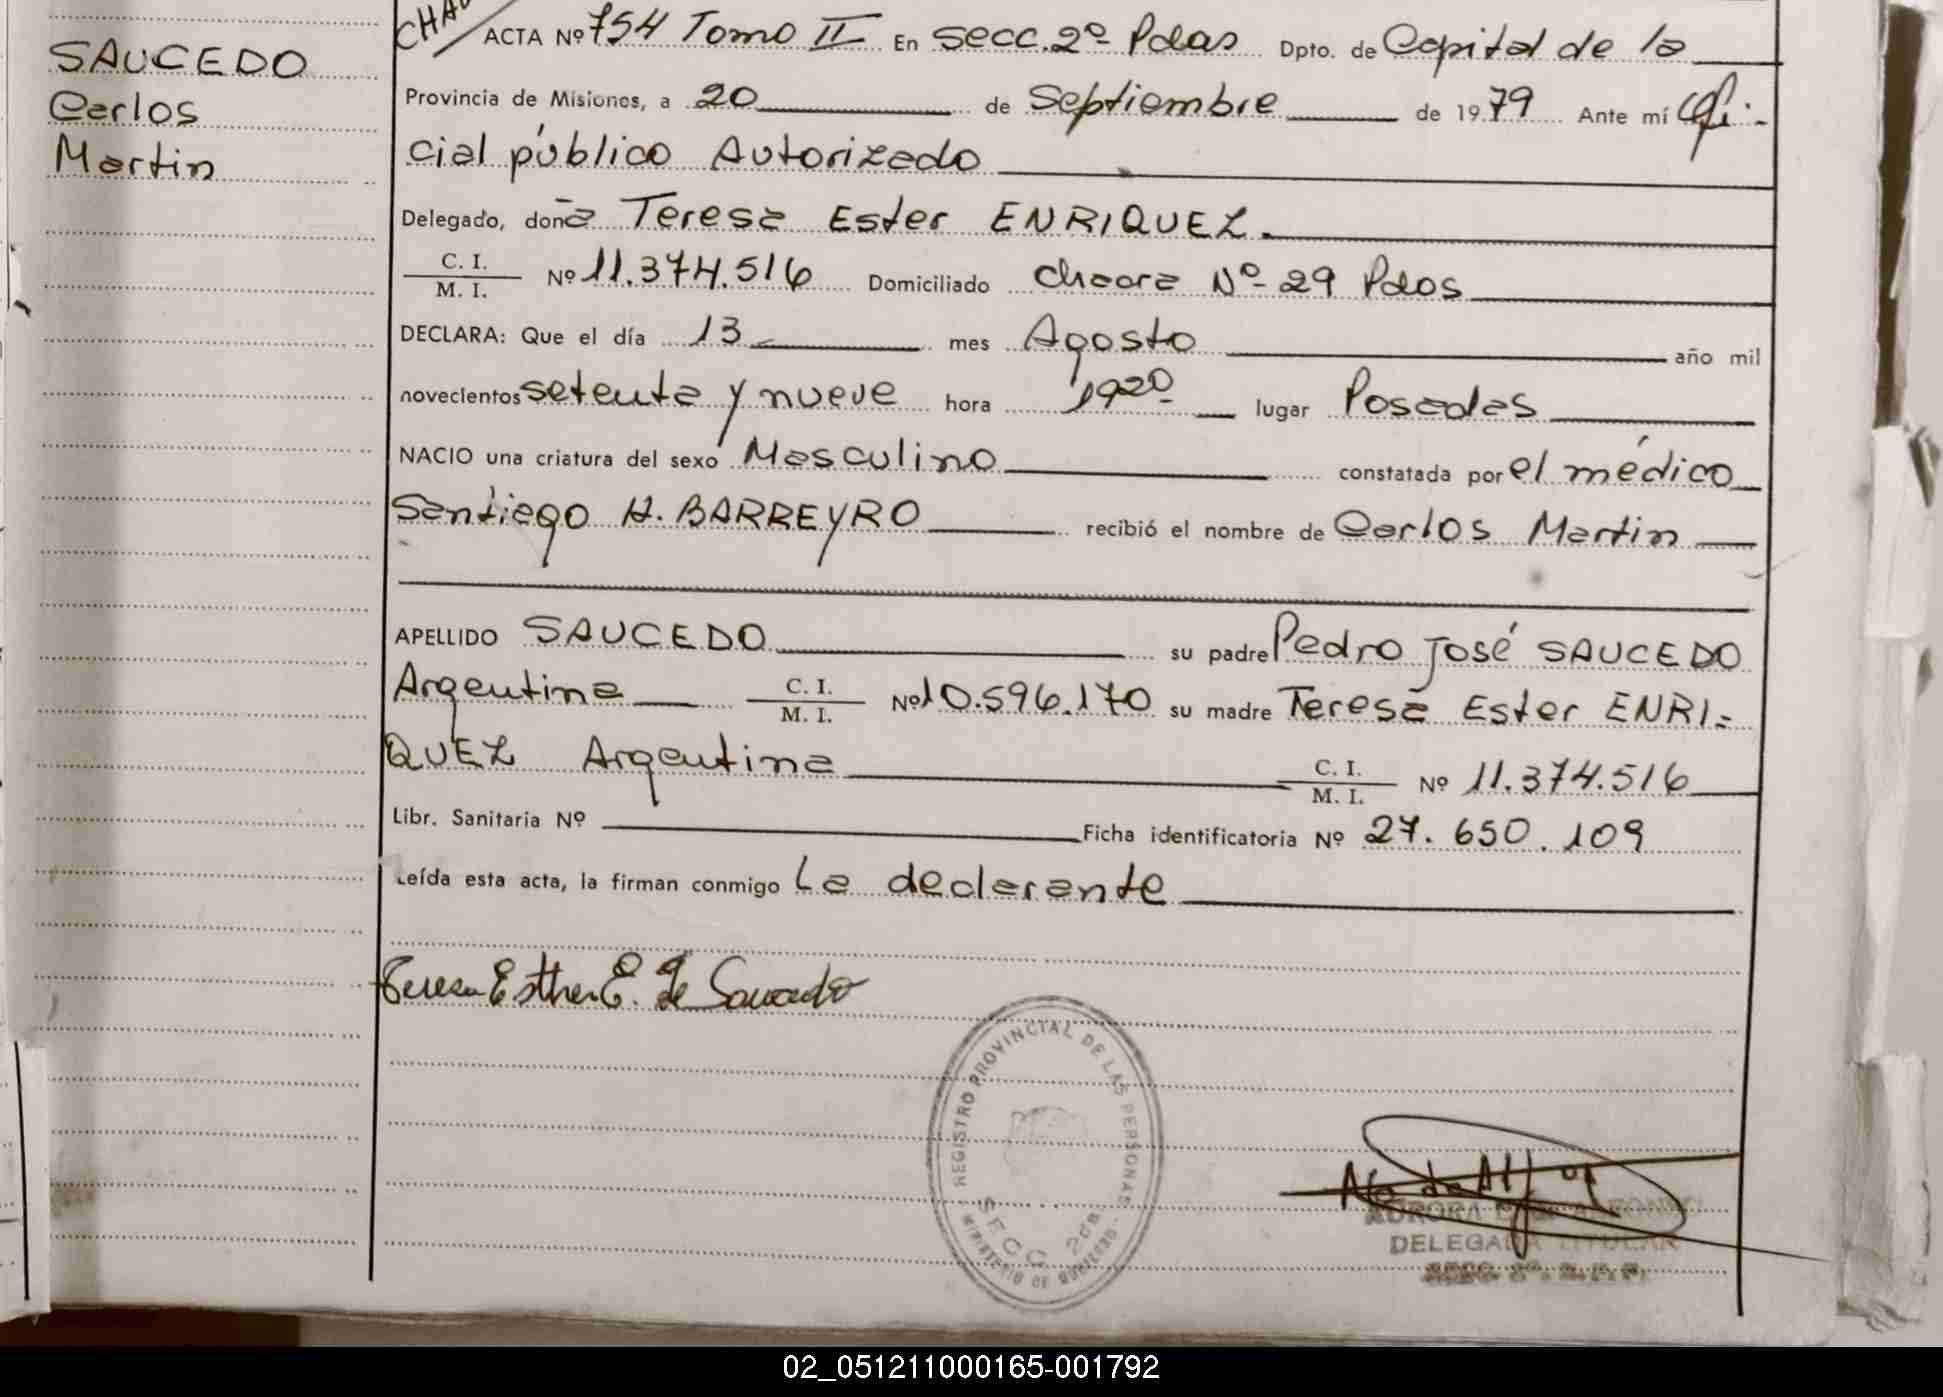 SAUCEDO
Carlos
Martin
ACTA Nº 754 Tomo II En Secc. 2º Pdas Dpto. de Capital de la
Provincia de Misiones, a 20 de Septiembre de 1979 Ante mí Ofi-
cial público Autorizado
Delegado, doña Teresa Ester ENRIQUEZ.
C. I.
M. I. Nº 11.374.516 Domiciliado Chacra Nº 29 Pdas
DECLARA: Que el día 13 mes Agosto año mil
novecientos setenta y nueve hora 1920 lugar Posadas
NACIO una criatura del sexo Masculino constatada por el médico
Santiago H. BARREYRO recibió el nombre de Carlos Martin
APELLIDO SAUCEDO su padre Pedro José SAUCEDO
Argentina C. I.
M. I. Nº 10.596.170 su madre Teresa Ester ENRI=
QUEZ Argentina C. I.
M. I. Nº 11.374.516
Libr. Sanitaria Nº Ficha identificatoria Nº 27.650.109
Leída esta acta, la firman conmigo La declarante
Teresa Esther E. de Saucedo
REGISTRO PROVINCIAL DE LAS PERSONAS
SECC 2da
MINISTERIO DE GOBIERNO
AURORA
DELEGADA TITULAR
02_051211000165-001792